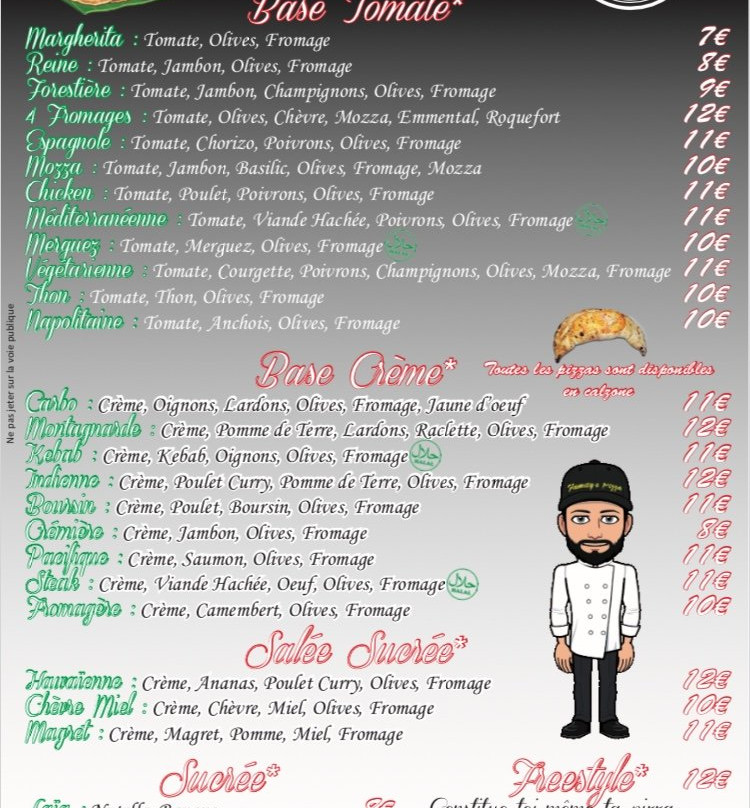 Base Tomate*
Margherita : Tomate, Olives, Fromage 7€
Reine : Tomate, Jambon, Olives, Fromage 8€
Forestière : Tomate, Jambon, Champignons, Olives, Fromage 9€
4 Fromages : Tomate, Olives, Chèvre, Mozza, Emmental, Roquefort 12€
Espagnole : Tomate, Chorizo, Poivrons, Olives, Fromage 11€
Mozza : Tomate, Jambon, Basilic, Olives, Fromage, Mozza 10€
Chicken : Tomate, Poulet, Poivrons, Olives, Fromage 11€
Méditerranéenne : Tomate, Viande Hachée, Poivrons, Olives, Fromage حلال HALAL 11€
Merguez : Tomate, Merguez, Olives, Fromage حلال HALAL 10€
Végétarienne : Tomate, Courgette, Poivrons, Champignons, Olives, Mozza, Fromage 11€
Thon : Tomate, Thon, Olives, Fromage 10€
Napolitaine : Tomate, Anchois, Olives, Fromage 10€
Ne pas jeter sur la voie publique
Base Crème*
Toutes les pizzas sont disponibles
en calzone
Carbo : Crème, Oignons, Lardons, Olives, Fromage, Jaune d'oeuf 11€
Montagnarde : Crème, Pomme de Terre, Lardons, Raclette, Olives, Fromage 12€
Kebab : Crème, Kebab, Oignons, Olives, Fromage حلال HALAL 11€
Indienne : Crème, Poulet Curry, Pomme de Terre, Olives, Fromage 12€
Boursin : Crème, Poulet, Boursin, Olives, Fromage 11€
Crémière : Crème, Jambon, Olives, Fromage 8€
Pacifique : Crème, Saumon, Olives, Fromage 11€
Steak : Crème, Viande Hachée, Oeuf, Olives, Fromage حلال HALAL 11€
Fromagère : Crème, Camembert, Olives, Fromage 10€
Salée Sucrée*
Hawaïenne : Crème, Ananas, Poulet Curry, Olives, Fromage 12€
Chèvre Miel : Crème, Chèvre, Miel, Olives, Fromage 10€
Magret : Crème, Magret, Pomme, Miel, Fromage 11€
Sucrée*
Freestyle* 12€